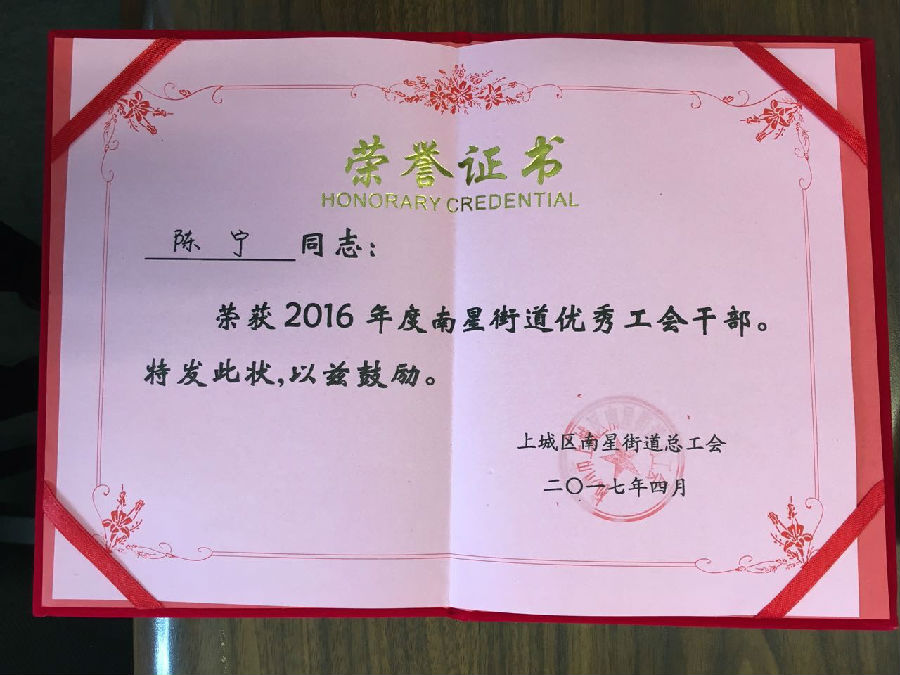 荣誉证书
HONORARY CREDENTIAL
陈宁 同志：
荣获2016年度南星街道优秀工会干部。
特发此状,以兹鼓励。
上城区南星街道总工会
二〇一七年四月